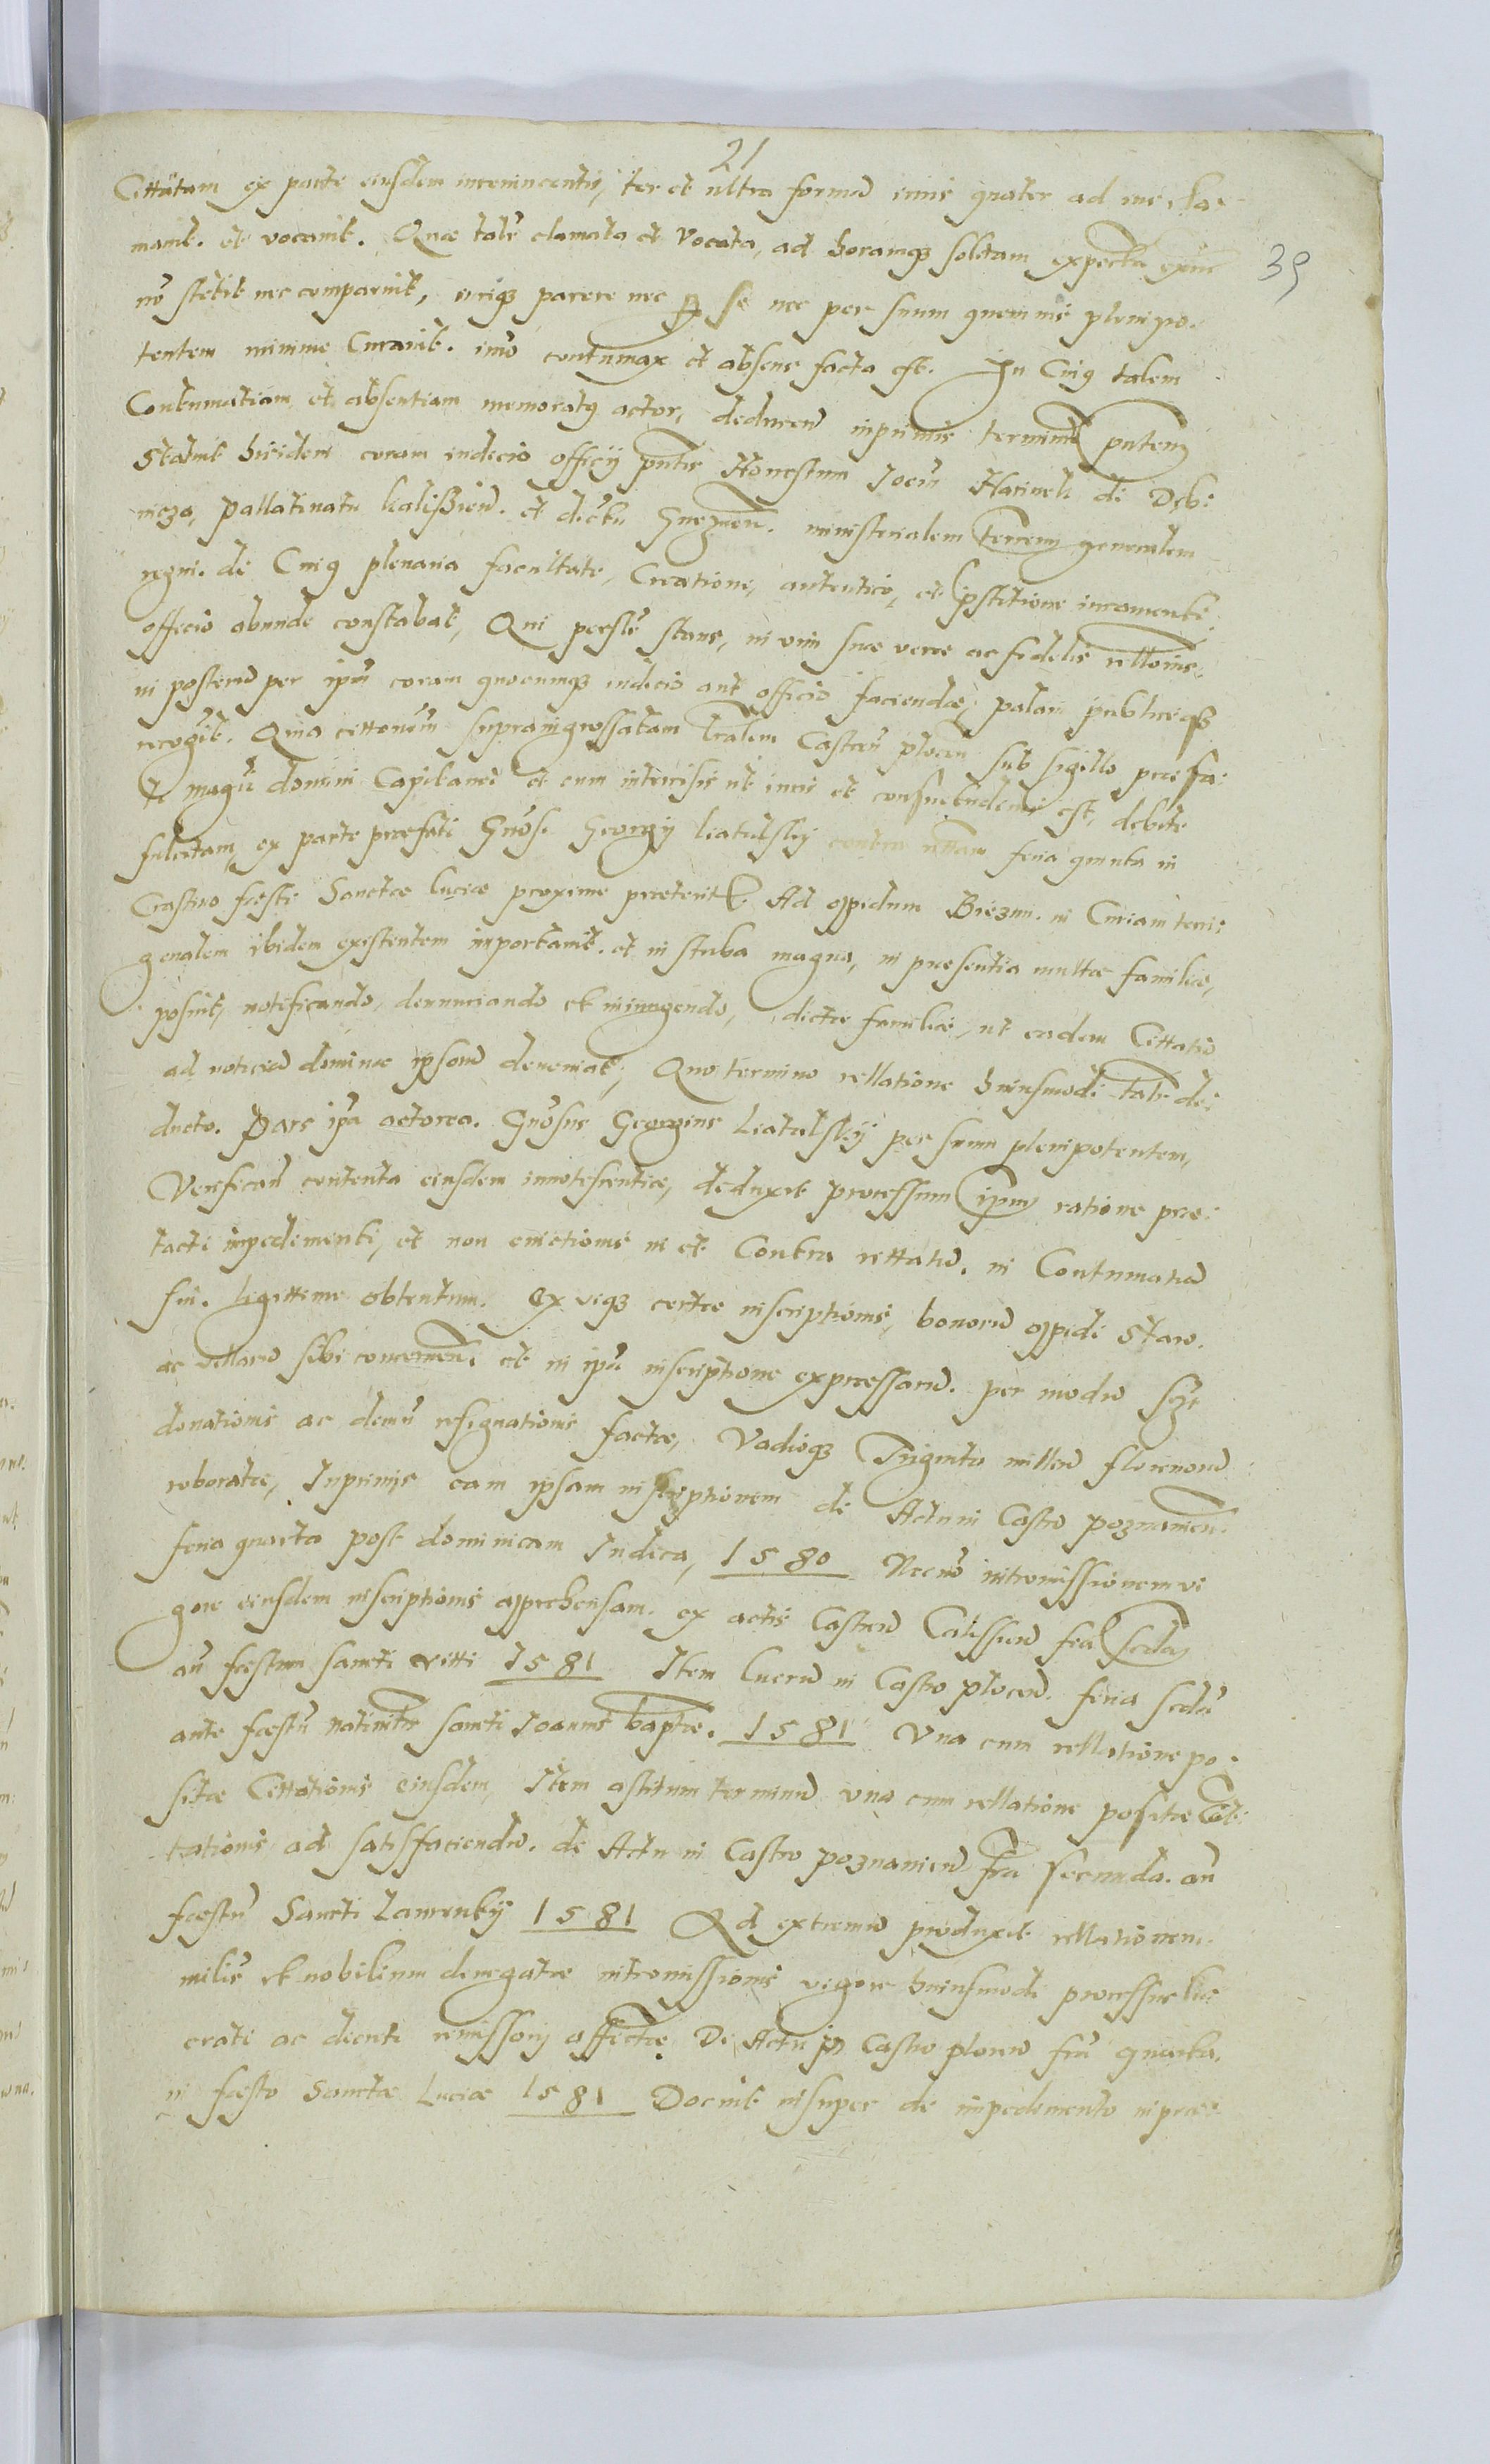 21
39
Cittatam ex parte eiusdem inreminentis, ter et ultra formã iuris quater ad ius cla-
mavit. et vocavit. Quae talr̃ clamata et vocata, ad horamq3 solitam expectata
nõ stetit nec comparuit, iuriq3 parere nec p̱ se nec per suum quemvis plenipo-
tentem minime Curavit. imõ contumax et absens facta est. In Cuiq talem
Contumatiam et absentiam memoratq actor, deducen̄ inprimis terminũ pñtem
Statuit ibidem coram iudicio officij pñtis Honestum Jocũ Hacinek de Dębi-
nicza, pallatinatu kalissien̄. et dictu Gnezñen. ministerialem terreñ generalem
regni. de Cuiq plenaria facultate, Creatione, autentico, et pstitione incomenti
officio abunde constabat, Qui persr̃ stans, in vim suae verae ac fidelis rllonis
in posterũ per ipũ coram quocumq3 iudicio aut officio faciendae, palam publiceq3
recogũt. Quia cittonẽm supraingrossatam lralem Castreñ plocen̄ sub sigillo praefa-
ti magci domini Capitanei et cum intericisis ut iuris et consuetudinis est, debite
fulcitam, ex parte praefati Gñosi Georgij latalskij contra rttam feria quinta in
Crastino festi Sanctae luciae proxime praeterit. Ad oppidum Biezuni. in Curiam terri-
genalem ibidem existentem importavit. et in stuba magna, in presentia multae familiae,
posuit, notificando, denunciando et iniungendo, dictae familiae, ut eadem Cittatio
ad noticiã dominae ipsorũ deveniat; Quo termino rellatione huiusmodi talr̃ de-
ducto. Pars ipa actorea. Gñosus Georgius Latalskij per suum plenipotentem,
Verifican̄ contenta eiusdem innotescentiae, deduxit processum ipm̄ ratione prae-
tacti impedimenti, et non evictionis in et Contra rittatã. in Contumatiã
sui. Legittime obtentum. Ex viq3 certae inscriptionis, bonorũ oppidi Staro.
ac villarũ sibi concernen̄. et in ipa inscriptione expressarũ. per modũ
donationis ac demũ resignationis factae, Vadioq3 Triginta millia florenorũ
roboratae, Inprimis eam ipsam inscriptionem de Actu in Castro poznanien̄.
feria quarta post dominicam Iudica, 1580 Necnõ intromissionem vi
gore eiusdem inscriptionis apprehensam. ex actis Castren̄ Calissien̄ fea Scda
añ festum sancti Vitti 1581 Item lucrũ in Castro plocen̄. feria scda
ante festũ nativitĩs sancti Joannis baptae. 1581 Una cum rellatione po-
sitae Cittationis eiusdem, Item astitum terminũ una cum rellatione positae Cit-
tationis ad satisfaciendũ. de Actu in Castro poznanien̄ fra secunda. añ
festũ Sancti Laurentij 1581 Ad extremũ produxit rellationem
milis et nobilium denegatae intromissionis vigore huiusmodi processus lu-
crati ac decreti remissorij affectae. De Actu in Castro plocen̄ fria quarta,
in festo Sanctae Luciae 1581 Docuit insuper de impedimento in prae-